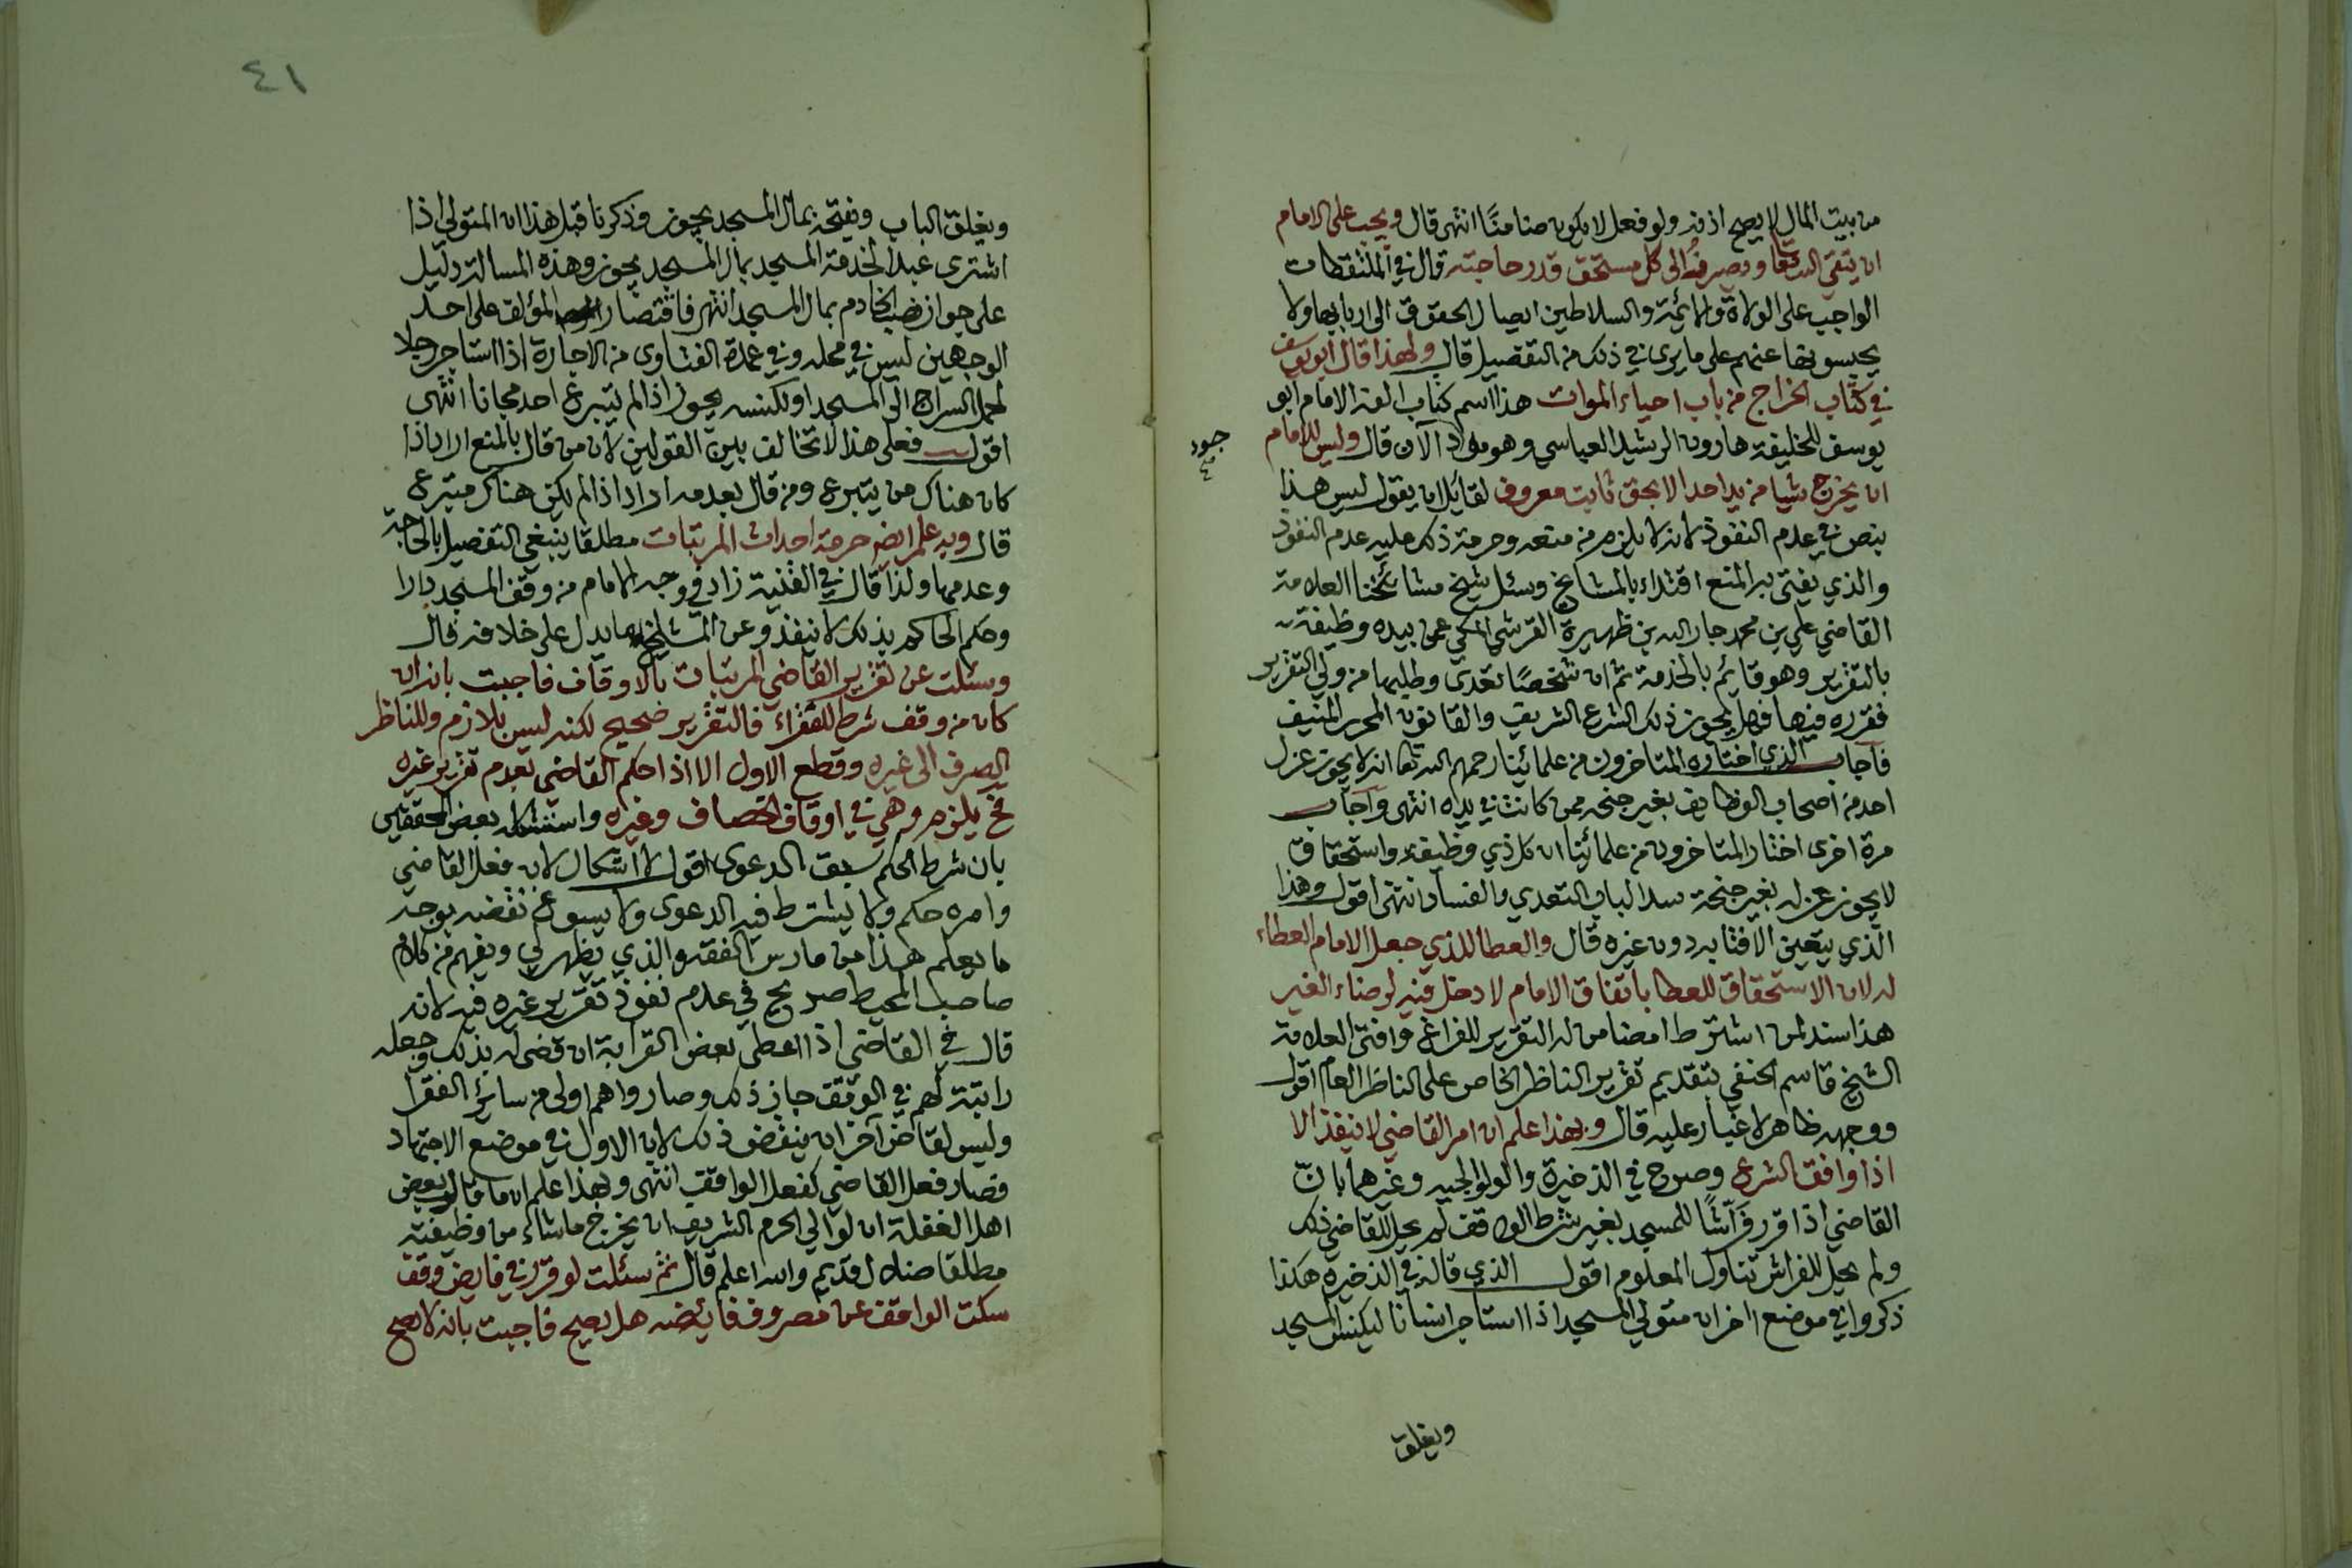 من بيت المال لا يصح اذنه ولو فعل لا يكون ضامنًا انتهى قال ويجب على الامام
ان يتقي الله تعا ويصرف الى كل مستحق قدر حاجته قال في الملتقطات
الواجب على الولاة والائمة والسلاطين ايصال الحقوق الى اربابها ولا
يحبسونها عنهم على ما يرى في ذلك من التفصيل قال ولهذا قال ابو يوسف
في كتاب الخراج من باب احياء الموات هذا اسم كتاب الفه الامام ابو
يوسف للخليفة هارون الرشيد العباسي وهو الآن قال وليس للامام
جود
ان يخرج شيا من يد احد الا بحق ثابت معروف لقائل ان يقول ليس هذا
بنص في عدم النفوذ لانه لا يلزم من منعه وحرمة ذلك عليه عدم النفوذ
والذي يفتى به المنع اقتداء بالمشايخ وسئل شيخ مشائخنا العلامة
القاضي علي بن محمد جار الله بن ظهيرة القرشي المكي عمن بيده وظيفة
بالتقرير وهو قائم بالخدمة ثم ان شخصًا تعدى وطلبها من ولي التقرير
فقرره فيها فهل يجوز ذلك الشرع الشريف والقانون المحرر المنيف
فاجاب الذي اختاره المتاخرون من علمائنا رحمهم الله تعا انه لا يجوز عزل
احد من اصحاب الوظايف بغير جنحه ممن كانت في يده انتهى واجاب
مرة اخرى اختار المتاخرون من علمائنا ان كل ذي وظيفة واستحقاق
لا يجوز عزله بغير جنحة سدا لباب التعدي والفساد انتهى اقول وهذا
الذي يتعين الافتا به دون غيره قال والعطا للذي جعل الامام العطاء
له لان الاستحقاق للعطا باتفاق الامام لا دخل فيه لرضاء الغير
هذا سند لمن اشترط امضا من له التقرير للفراغ وافتى العلامة
الشيخ قاسم الحنفي بتقديم تقرير الناظر الخاص على الناظر العام اقول
ووجهه ظاهر لا غبار عليه قال وبهذا علم ان امر القاضي لا ينفذ الا
اذا وافق الشرع وصرح في الذخيرة والولوالجيه وغيرهما بان
القاضي اذا قرر فرّاشًا للمسجد بغير شرط الواقف لم يحل للقاضي ذلك
ولم يحل للفراش تناول المعلوم اقول الذي قاله في الذخيرة هكذا
ذكروا في موضع اخر ان متولي المسجد اذا استاجر انسانا ليكنس المسجد
ويغلق
٤١
ويغلق الباب ويفتحه بمال المسجد يجوز وذكرنا قبل هذا ان المتولي اذا
اشترى عبدا لخدمة المسجد بمال المسجد يجوز وهذه المسالة دليل
على جواز نصب الخادم بمال المسجد انتهى فاقتصار المؤلف على احد
الوجهين ليس في محله وفي عمدة الفتاوى من الاجارة اذا استاجر رجلا
لحمل السراج الى المسجد او لكنسه يجوز اذا لم يتبرع احد مجانا انتهى
اقول فعلى هذا لا تخالف بين القولين لان من قال بالمنع اراد اذا
كان هناك من يتبرع ومن قال بعدمه اراد اذا لم يكن هناك متبرع
قال وبه علم ايضا حرمة احداث المرتبات مطلقا ينبغي التفصيل بالحاجة
وعدمها ولذا قال في القنية زاد في وجه الامام من وقف المسجد دارا
وحكم الحاكم بذلك لا ينفذ وعن المشايخ ما يدل على خلافه قال
وسئلت عن تقرير القاضي المرتبات بالاوقاف فاجبت بانه ان
كان من وقف شرط للفقراء فالتقرير صحيح لكنه ليس بلازم وللناظر
الصرف الى غيره وقطع الاول الا اذا حكم القاضي بعدم تقرير غيره
فح يلزم وهي في اوقاف الخصاف وغيره واستشكله بعض المحققين
بان شرط الحكم سبق الدعوى اقول لا اشكال لان فعل القاضي
وامره حكم ولا يشترط فيه الدعوى ولا يسوغ نقضه بوجه
ما يعلم هذا من مارس الفقه والذي يظهر لي ويفهم من كلام
صاحب المحيط صريح في عدم نفوذ تقرير غيره فيه لانه
قال في القاضي اذا اعطى بعض القرابة ان قضى له بذلك وجعله
راتبة لهم في الوقف جاز ذلك وصاروا هم اولى من سائر الفقرا
وليس لقاض آخر ان ينقض ذلك لان الاول في موضع الاجتهاد
فصار فعل القاضي كفعل الواقف انتهى وبهذا علم ان ما قاله بعض
اهل الغفلة ان لوالي الحرم الشريف ان يخرج ما شاء من وظيفته
مطلقا ضلال قديم والله اعلم قال ثم سئلت لو قرر في فايض وقف
سكت الواقف عن مصروف فائضه هل يصح فاجبت بانه لا يصح